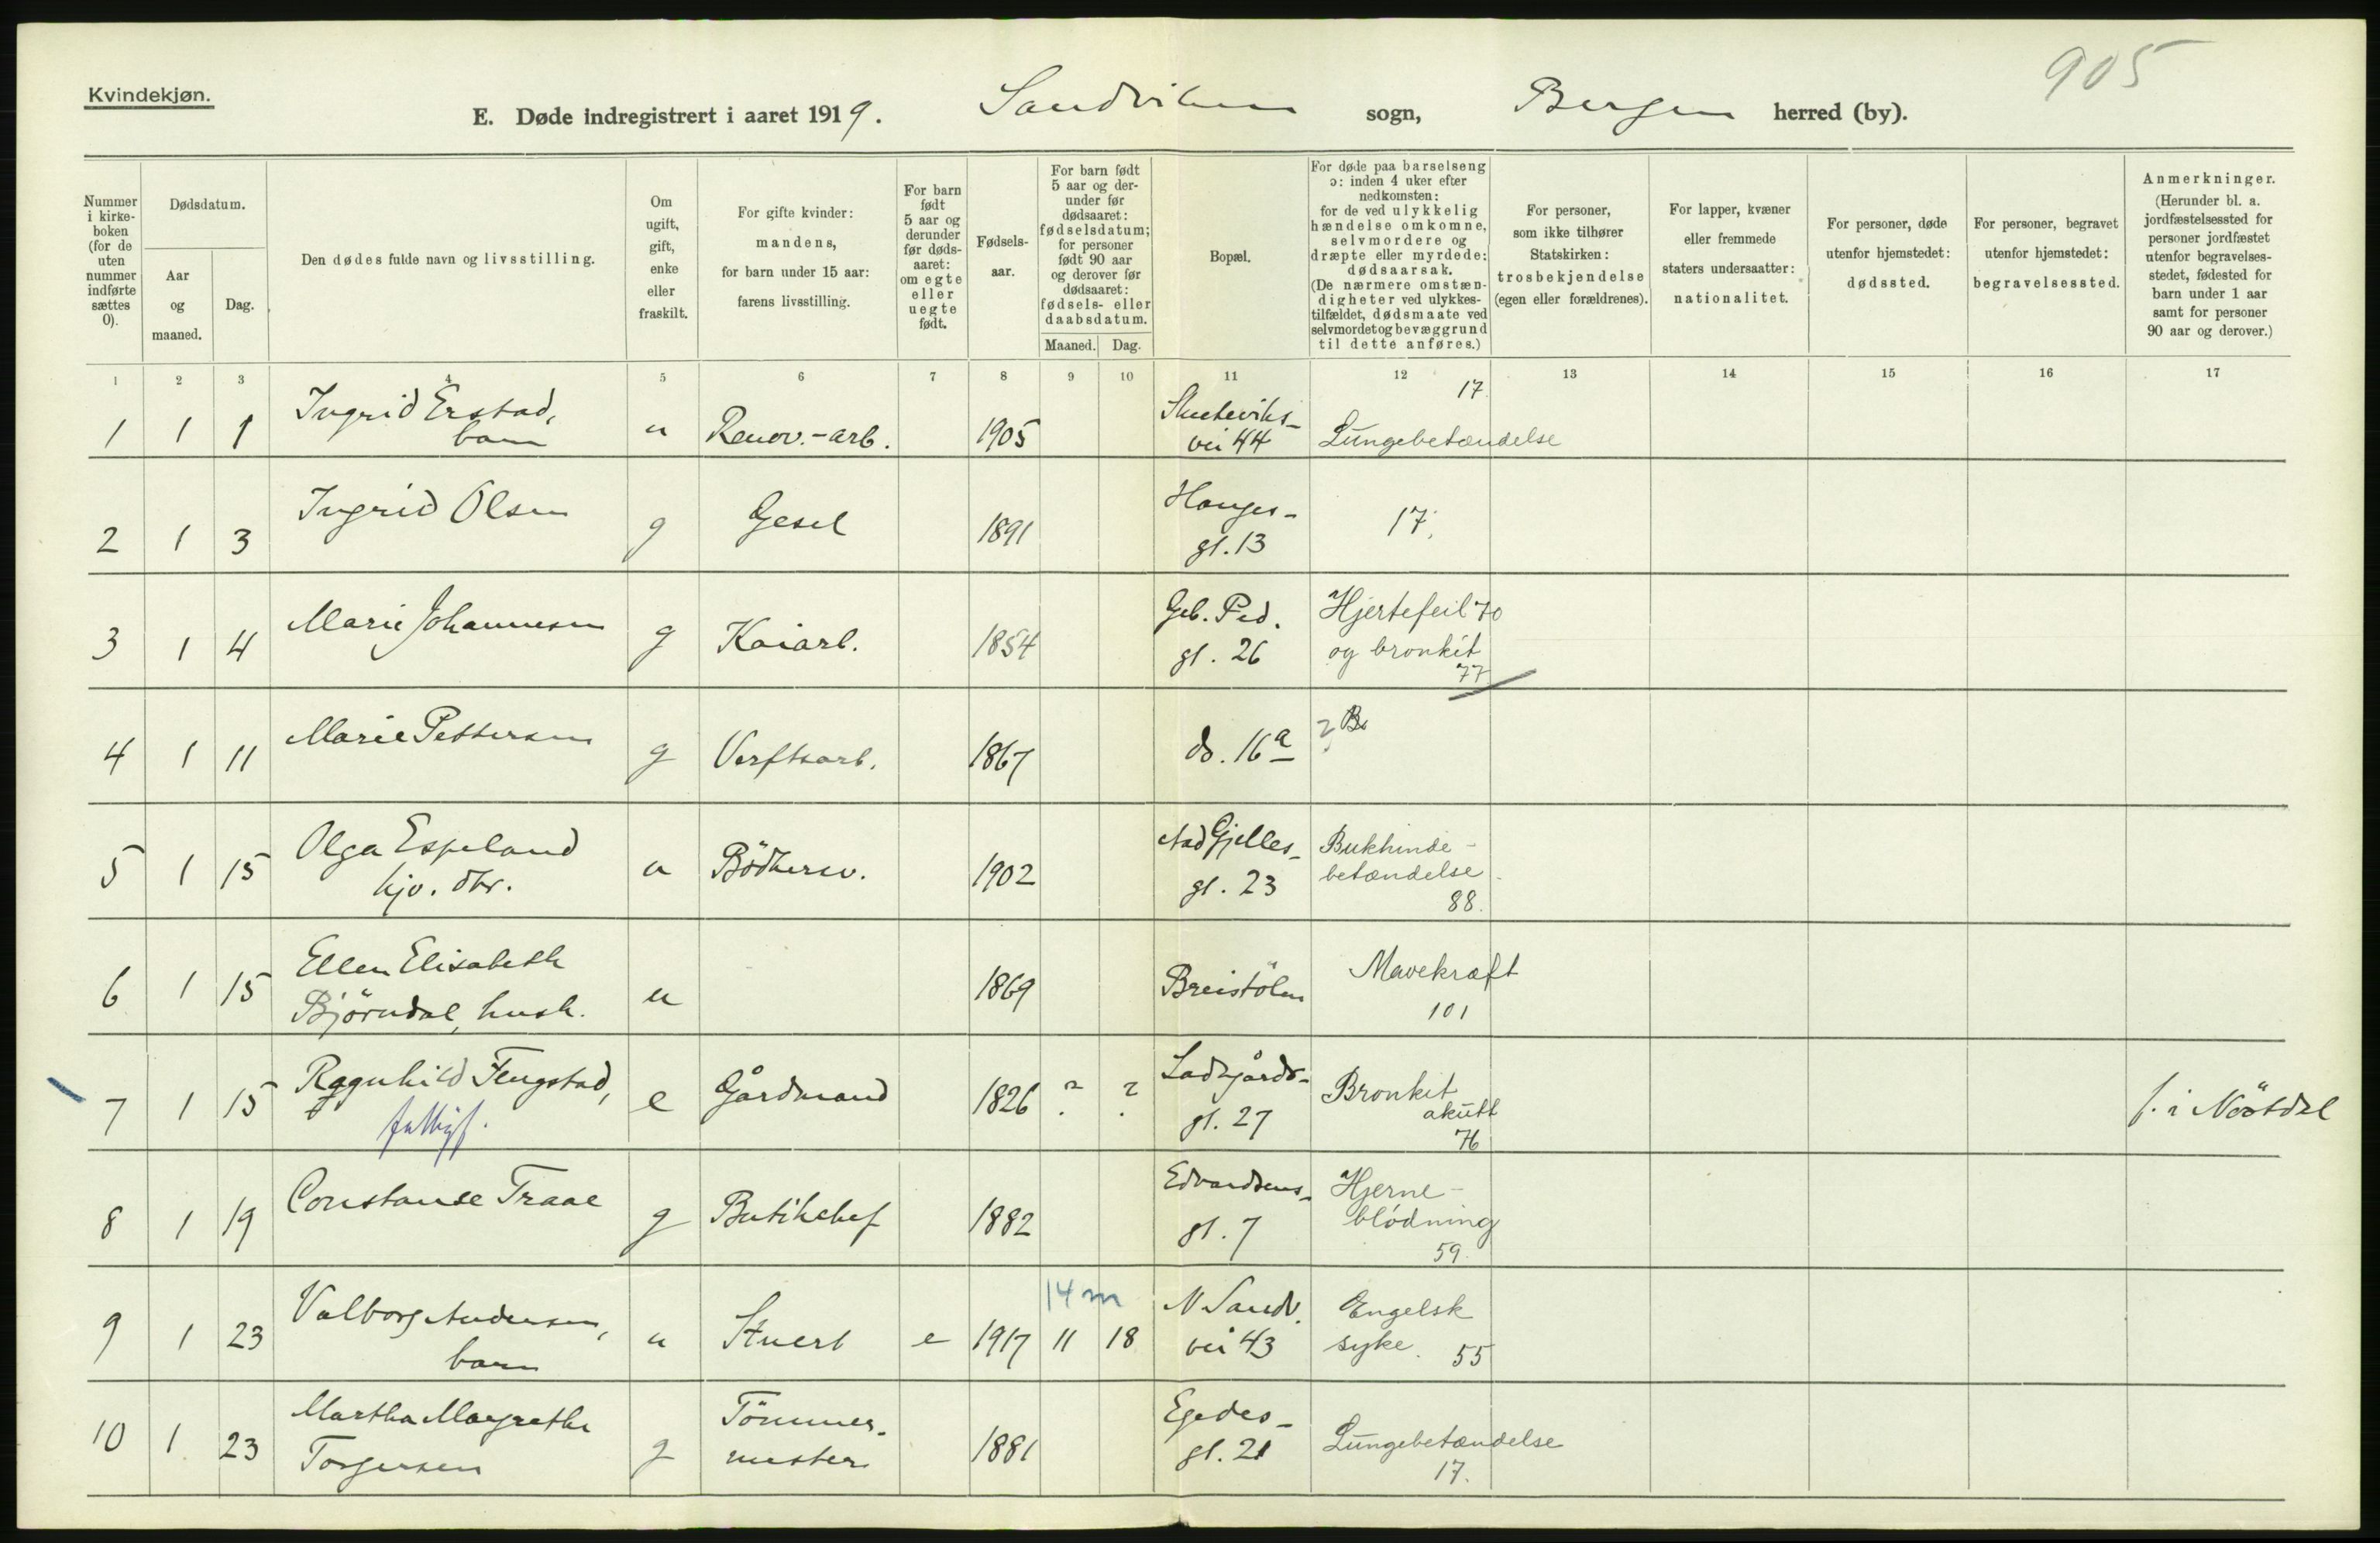 905
Kvindekjøn.
E. Døde indregistrert i aaret 1919. Sandviken sogn, Bergen herred (by).
Nummer i kirke-boken (for de uten nummer indførte sættes 0).
Dødsdatum.
Aar og maaned.
Dag.
Den dødes fulde navn og livsstilling.
Om ugift, gift, enke eller fraskilt.
For gifte kvinder: mandens, for barn under 15 aar: farens livsstilling.
For barn født 5 aar og derunder før døds-aaret: om egte eller uegte født.
Fødsels-aar.
For barn født 5 aar og der-under før dødsaaret: fødselsdatum; for personer født 90 aar og derover før dødsaaret: fødsels- eller daabsdatum.
Maaned. Dag.
Bopæl.
For døde paa barselseng ɔ: inden 4 uker efter nedkomsten: for de ved ulykkelig hændelse omkomne, selvmordere og dræpte eller myrdede: dødsaarsak. (De nærmere omstæn-digheter ved ulykkes-tilfældet, dødsmaate ved selvmordet og bevæggrund til dette anføres.)
For personer, som ikke tilhører Statskirken: trosbekjendelse (egen eller forældrenes).
For lapper, kvæner eller fremmede staters undersaatter: nationalitet.
For personer, døde utenfor hjemstedet: dødssted.
For personer, begravet utenfor hjemstedet: begravelsessted.
Anmerkninger. (Herunder bl. a. jordfæstelsessted for personer jordfæstet utenfor begravelses-stedet, fødested for barn under 1 aar samt for personer 90 aar og derover.)
1 2 3 4 5 6 7 8 9 10 11 12 13 14 15 16 17
1 1 1 Ingrid Erstad, barn u Renov.-arb. 1905 Skuteviks-vei 44 17. Lungebetændelse
2 1 3 Ingrid Olsen g Gesel 1891 Hauges-gt. 13 17.
3 1 4 Marie Johannesen g Kaiarb. 1854 Geb. Ped. gt. 26 Hjertefeil 70 og bronkit 77
4 1 11 Marie Pettersen g Verftsarb. 1867 do. 16a ? B.
5 1 15 Olga Espeland hjv. dtr. u Bödkersv. 1902 Aad Gjelles-gt. 23 Bukhinde-betændelse 88.
6 1 15 Ellen Elisabeth Björndal, hush. u 1869 Breistölen Mavekræft 101
7 1 15 Ragnhild Flugstad, fattigf. e Gårdmand 1826 ? ? Ladegårds-gt. 27 Bronkit akutt 76 f. i Nöstdal
8 1 19 Constanse Traae g Butikchef 1882 Edvardsens-gt. 7 Hjerne-blödning 59.
14 m
9 1 23 Valborg Andersen, barn u Stuert e 1917 11 18 N Sandv. vei 43 Engelsk syke. 55
10 1 23 Martha Margrethe Torgersen g Tömmer-mester 1881 Egedes-gt. 21 Lungebetændelse 17.